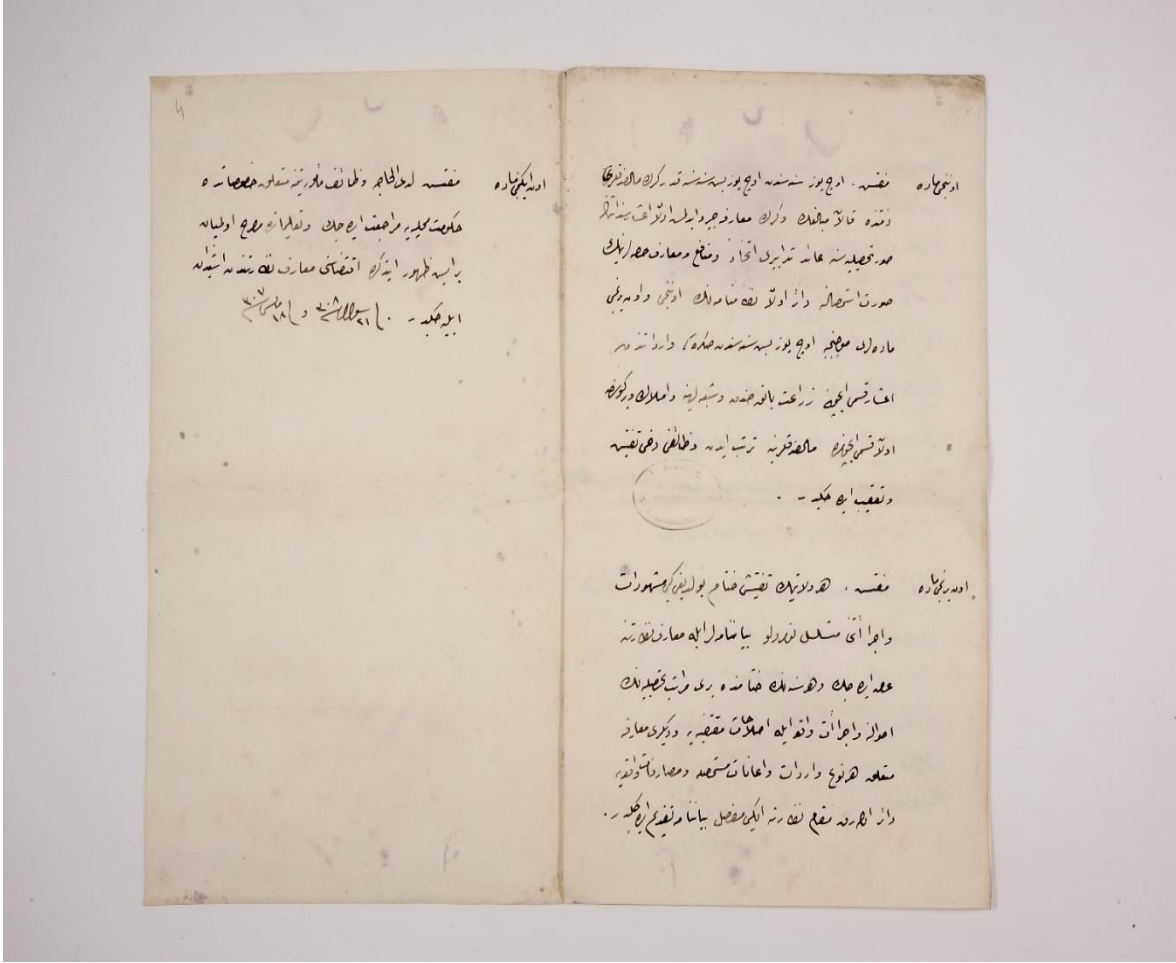 اوننجی ماده
مفتش . اوج یوز سنه سندن اوج یوز بش سنه سنه قدر کرک مال صندقلرنجه
ذمتده قالان مبالغك وکرك معارفجه
صور تحصیلیه سنه عائد تدابیری اتخاذ ومنافع ومعارف حصه لرینك
صورت استحصالنه دائر اولان نظامنامه نك اوننجی واون برنجی
ماده لری موجبنجه اوج یوز بش سنه سندن صکره کی وارداتندن
اعشار قسمی ایچون زراعت بانقه سندن وشعبه لرینه واملاك ویرکوسنه
اولان قسمی ایچونده مال صندقلرینه ترتب ایدن وظائفی دخی تفتیش
وتعقیب ایده جکدر .
اون برنجی ماده
مفتش . هر ولایتك تفتیشی ختام بولدیغی کبی مشهودات
واجرااتنی متسلسل نومرولو بیاننامه لر ایله معارف نظارتنه
عرض ایده جك وهر سنه نك ختامنده بری مراتب تحصیلیه نك
احوالنه واجراآت واقع ایله اصلاحات مقتضیه یه ودیکری معارفه
متعلق هر نوع واردات واعانات مستحصله ومصارفات واقعه یه
دائر اوله رق مقام نظارته ایکی مفصل بیاننامه تقدیم ایده جکدر .
اون ایکنجی ماده
مفتش لدی الحاجه وظائف مأموریتنه متعلق خصوصاتده
حکومت محلیه یه مراجعت ایده جك وتعلیماتده مصرح اولمیان
بر ایش ظهور ایتدکده اقتضاسنی معارف نظارتندن استیذان
ایلیه جکدر .